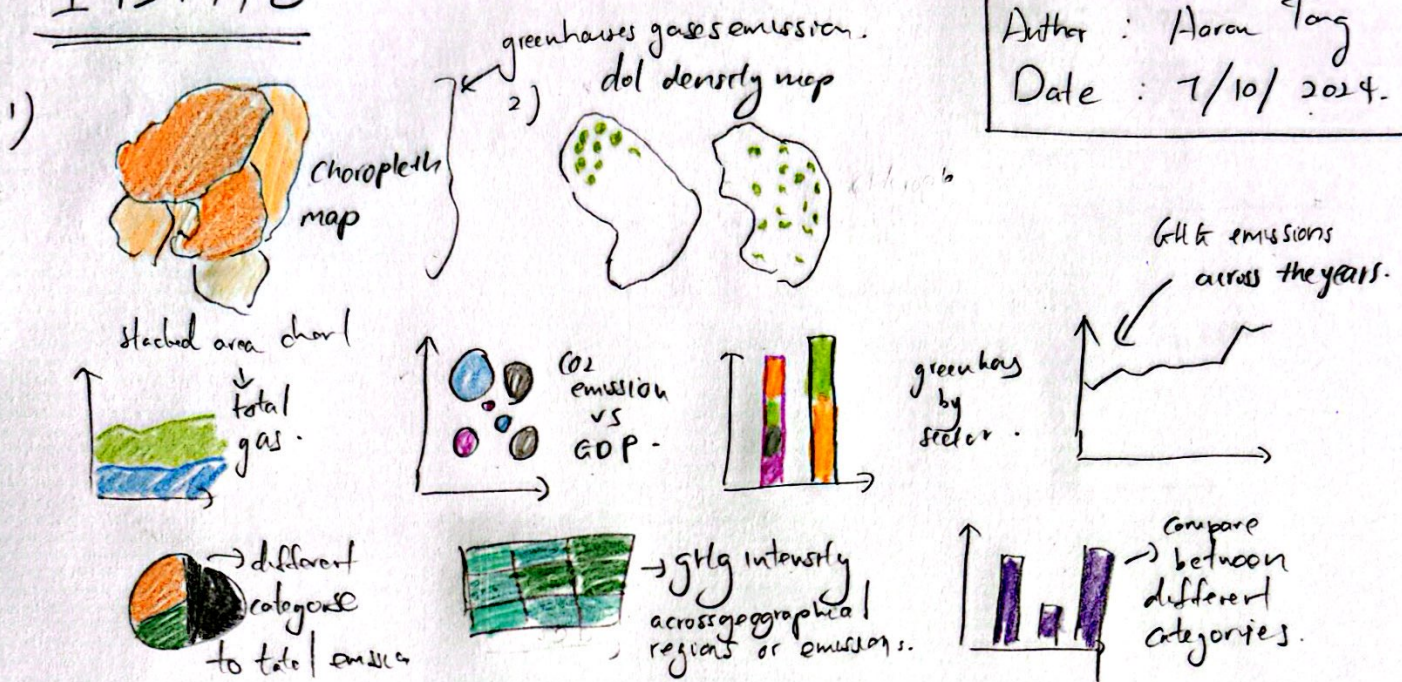 Author : Aaron Yang
Date : 7/10/2024.
greenhouses gases emission.
1)
2)
dot density map
Choropleth
map
GHG emissions
across the years.
stacked area chart
total
gas.
CO2
emission
vs
GDP.
greenhous
by
sector.
different
categorise
to total emission
GHG intensity
across geographical
regions or emissions.
compare
between
different
categories.